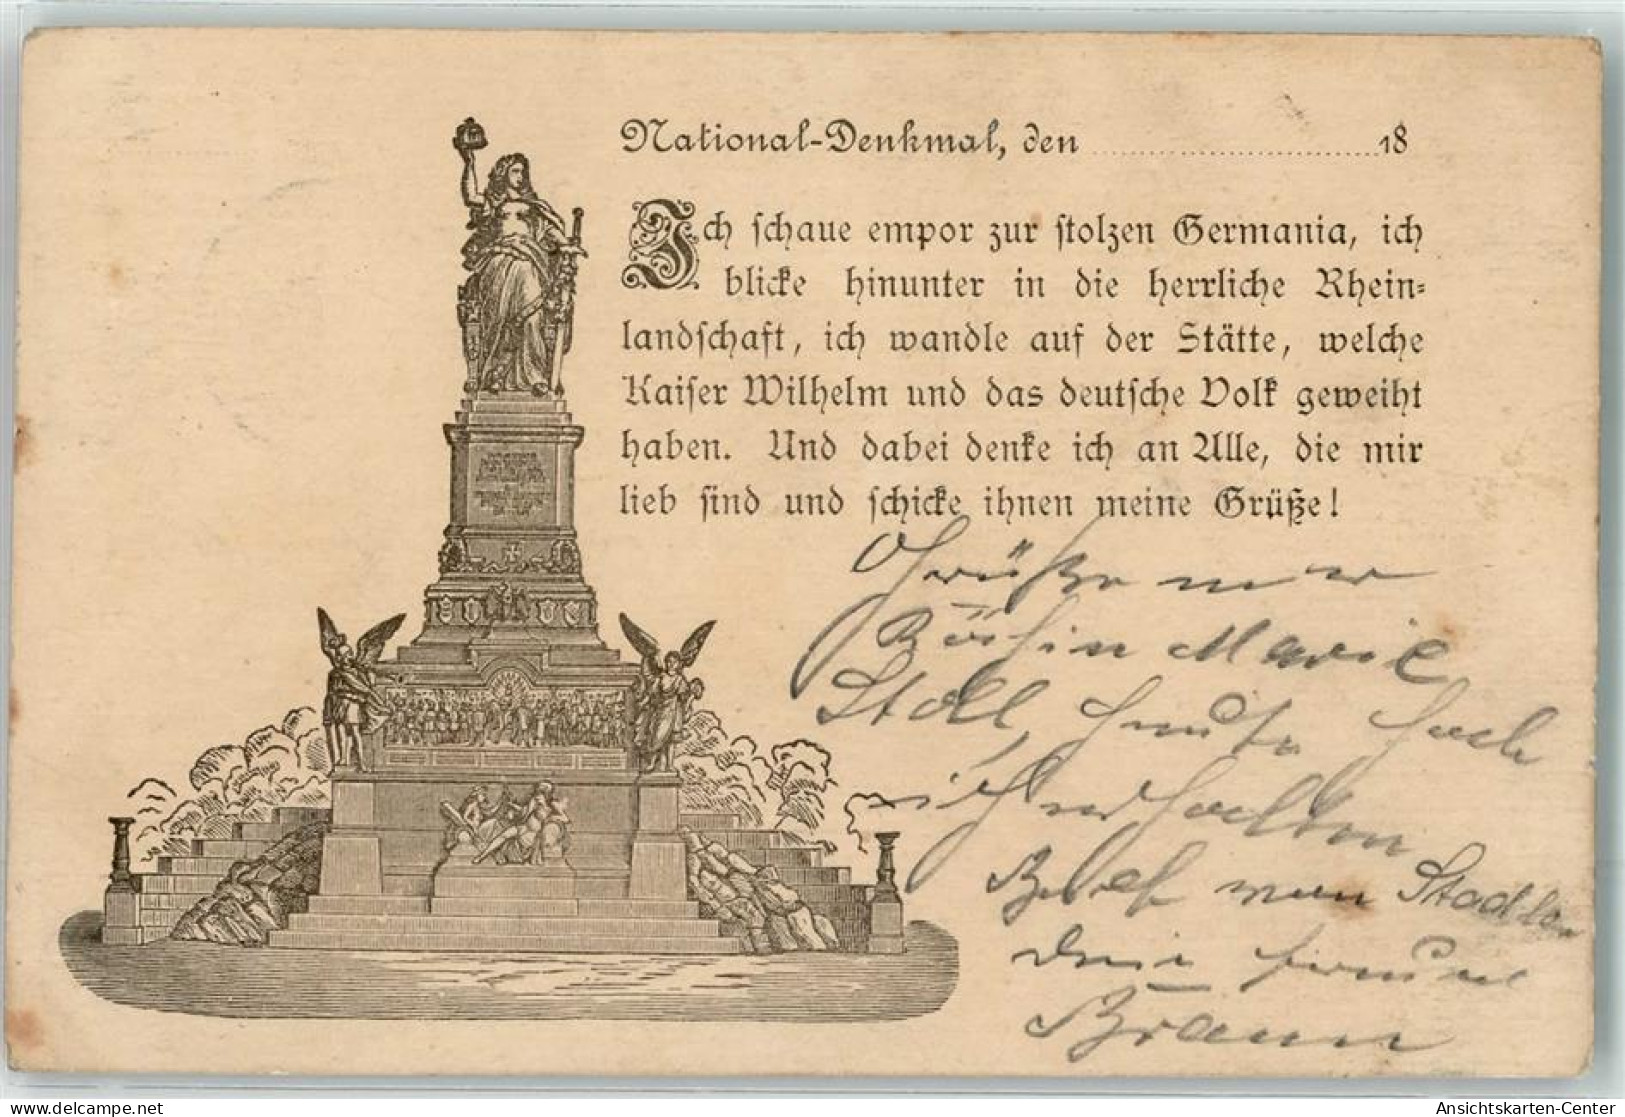 National-Denkmal, den 18
Ich schaue empor zur stolzen Germania, ich
blicke hinunter in die herrliche Rhein-
landschaft, ich wandle auf der Stätte, welche
Kaiser Wilhelm und das deutsche Volk geweiht
haben. Und dabei denke ich an Alle, die mir
lieb sind und schicke ihnen meine Grüße!
Grüße mir
Marie
Stoll, heute
ich erhalten
Brief von
dein
Braun
Ansichtskarten-Center